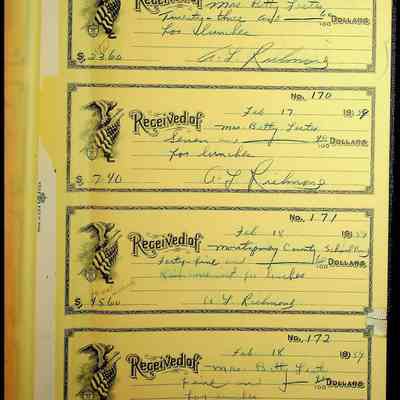 Received of Mrs Betty Teeter
Twenty three and 60/100 Dollars
for lunches
$ 23.60 A L Richmond
No. 170
Feb 17 1959
Received of Mrs Betty Teeter
Seven and 40/100 Dollars
for lunches
$ 7.40 A L Richmond
No. 171
Feb 18 1959
Received of Montgomery County School
Forty five and 60/100 Dollars
for lunches
$ 45.60 A L Richmond
No. 172
Feb 18 1959
Received of Mrs Betty
and /100 Dollars
for lunches